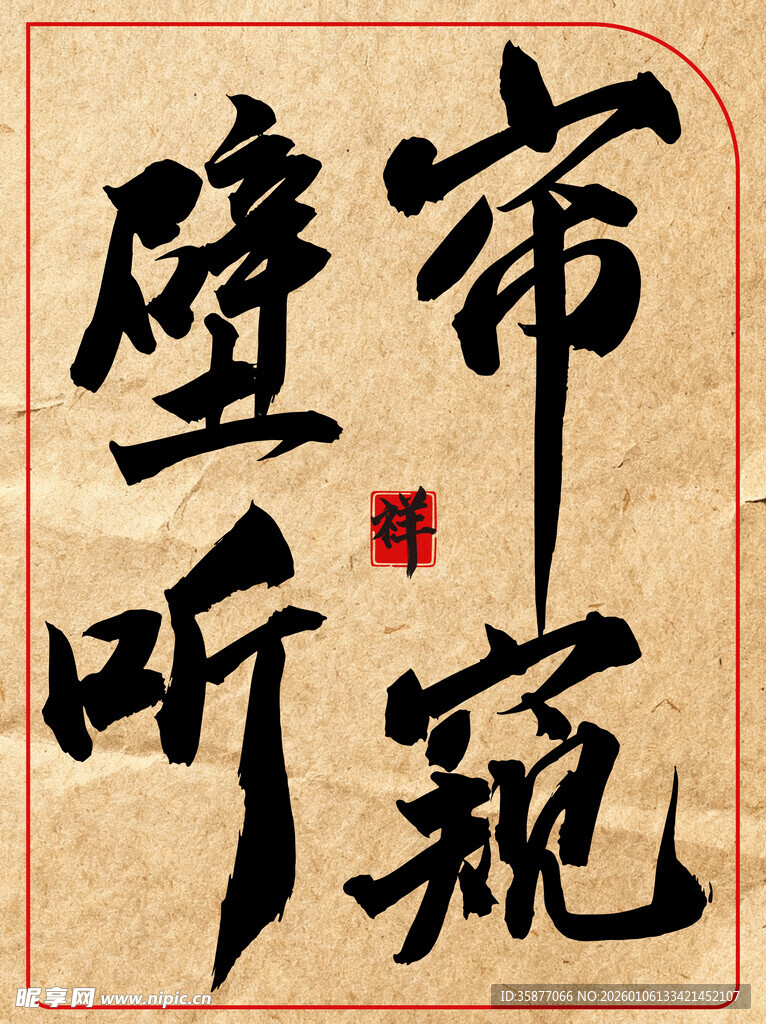 帘窥
壁听
祥
昵享网 www.nipic.cn
ID:35877066 NO:20260106133421452107